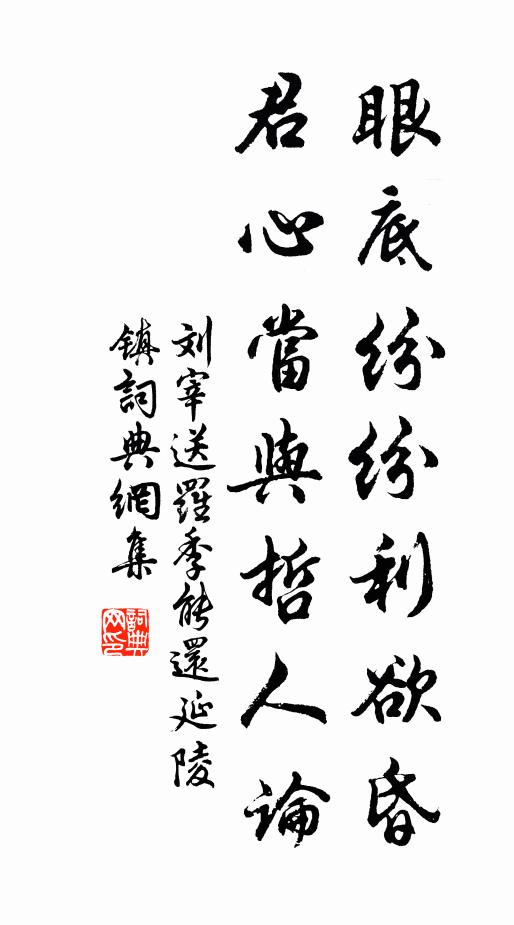 眼底紛紛利欲昏
君心當與哲人論
刘宰送羅季能還延陵
鎮詞典網集
詞典
网印